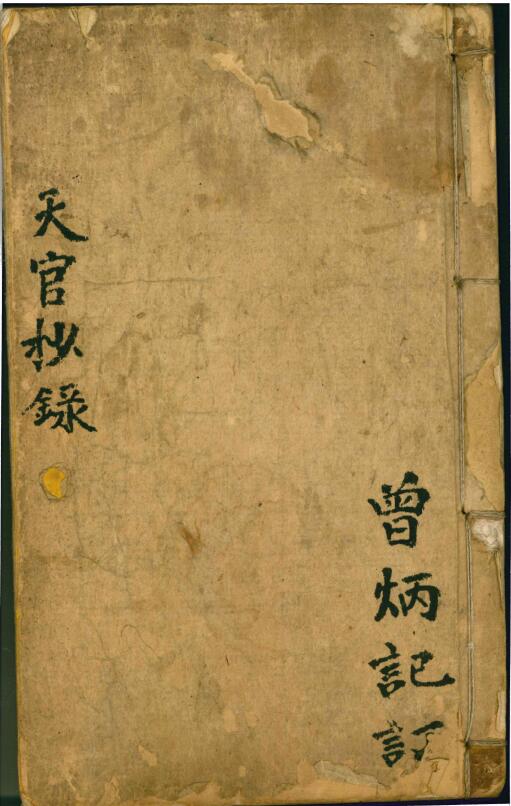 曾炳記訂
天官抄錄